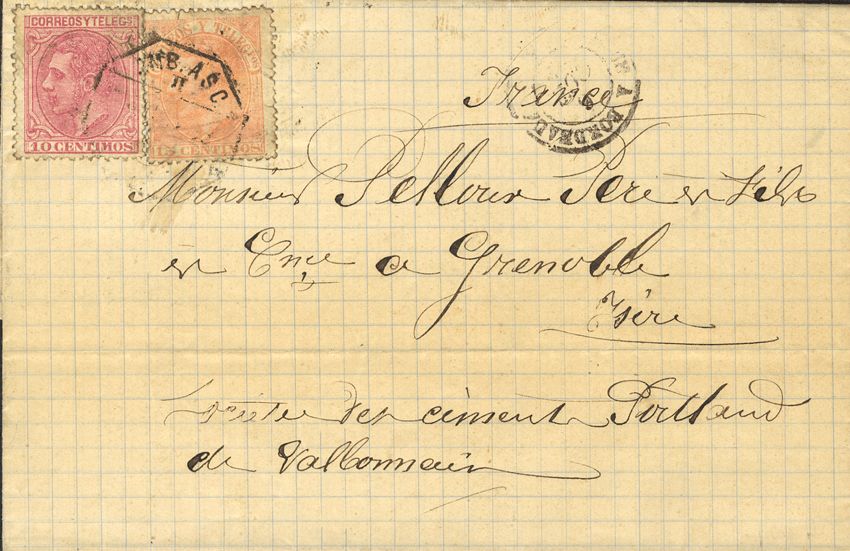 CORREOS Y TELEGS
10 CENTIMOS
15 CENTIMOS
AMB. ASC
A BORDEAUX
France
Monsieur Pelloux Père et Fils
et Cnie a Grenoble
Isère
Société des ciments Portland
de Valbonnais